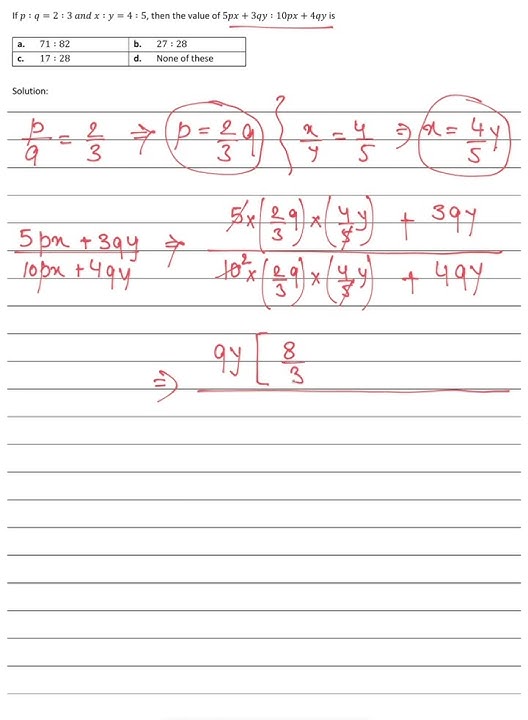 If p : q = 2 : 3 and x : y = 4 : 5, then the value of 5px + 3qy : 10px + 4qy is
a. 71 : 82 b. 27 : 28
c. 17 : 28 d. None of these
Solution:
p/q = 2/3 ⇒ p = 2/3 q } x/y = 4/5 ⇒ x = 4/5 y
(5px + 3qy)/(10px + 4qy) ⇒ (5×(2/3 q)×(4/5 y) + 3qy)/(10²×(2/3 q)×(4/5 y) + 4qy)
⇒ qy [ 8/3